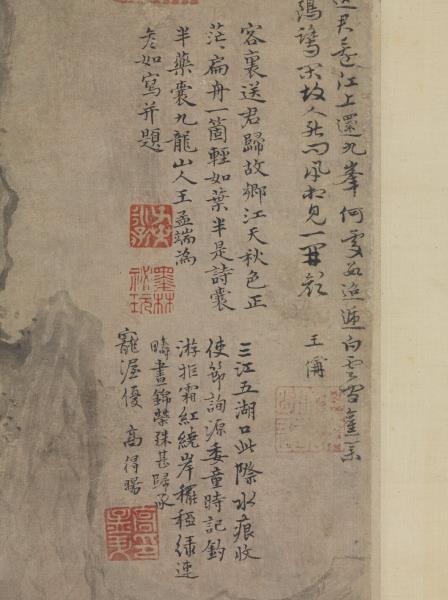 君還江上還九峯何處
故人
風相見一開顏
王偁
客裏送君歸故鄉江天秋色正
茫茫扁舟一箇輕如葉半是詩囊
半藥囊九龍山人王孟端為
彥如寫并題
墨林祕玩
三江五湖口此際水痕收
使節詢源委童時記釣
游拒霜紅繞岸穲稏綠連
疇晝錦榮殊甚歸承
寵渥優 高得暘